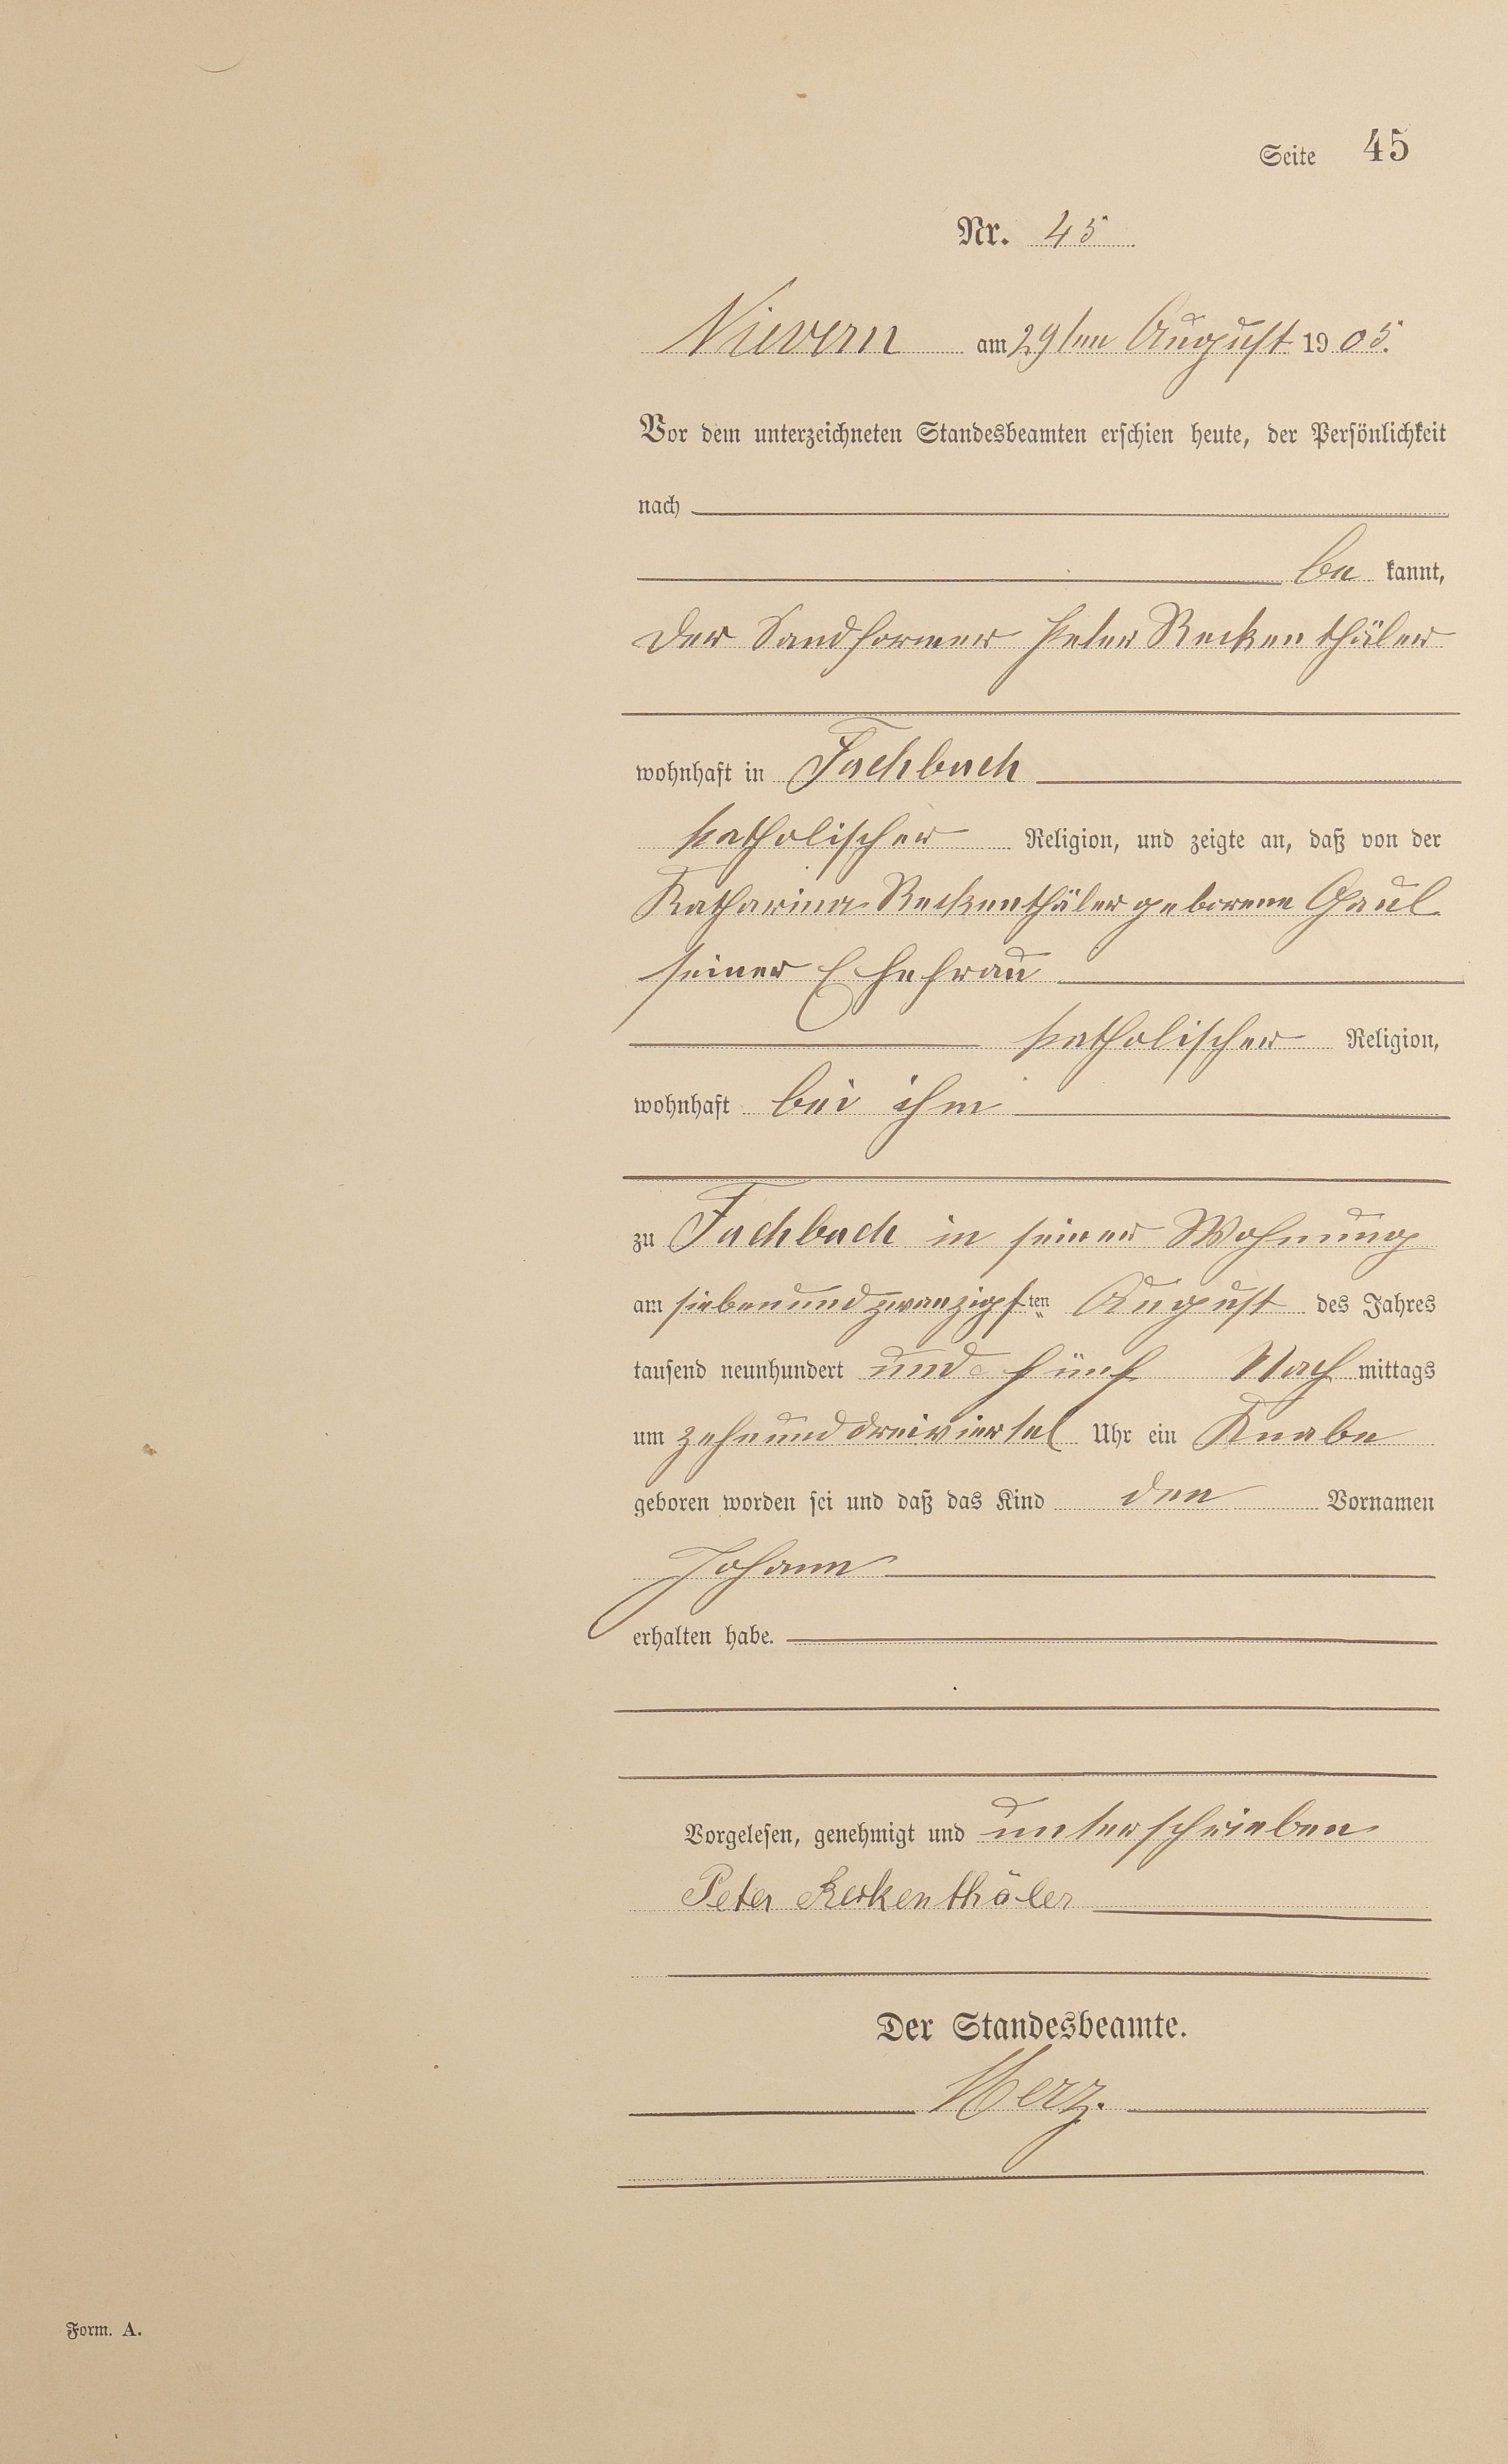 Seite 45
Nr. 45
Nievern am 29ten August 1905.
Vor dem unterzeichneten Standesbeamten erschien heute, der Persönlichkeit
nach
be kannt,
der Sandformer Peter Reckenthäler
wohnhaft in Fachbach
katholischer Religion, und zeigte an, daß von der
Katharina Reckenthäler geborene Gaul
seiner Ehefrau
katholischer Religion,
wohnhaft bei ihm
zu Fachbach in seiner Wohnung
am siebenundzwanzigsten August des Jahres
tausend neunhundert und fünf Nach mittags
um zehnunddreiviertel Uhr ein Knabe
geboren worden sei und daß das Kind den Vornamen
Johann
erhalten habe.
Vorgelesen, genehmigt und unterschrieben
Peter Reckenthäler
Der Standesbeamte.
Merz.
Form. A.